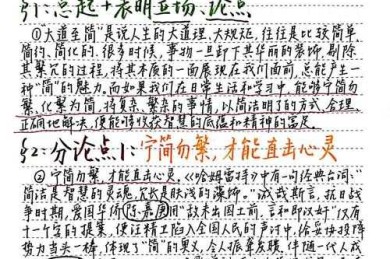 §1:总起+表明立场、论点
①“大道至简”是说人生的大道理、大规矩,往往是比较简单、
简约、简化的。很多时候,事物一旦卸下其华丽的装饰,剔除
其繁冗的过程,将其本质的一面展现在我们面前,总能产生一
种“简”的魅力。而如果我们在日常生活和学习中,能够宁简勿
繁,化繁为简,将复杂、繁杂的事情,以简洁明了的方式,合理、
正确地解决,便能够收获智慧的底蕴和精神的富足。
§2:分论点1:宁简勿繁,才能直击心灵
②宁简勿繁,才能直击心灵。《哈姆雷特》中有句经典台词:“
简洁是智慧的灵魂,冗长是肤浅的藻饰。”诚哉斯言,抗日战
争时期,爱国华侨陈嘉庚用“敌未出国土前,言和即汉奸”仅有
十一个字的提案,使汪精卫陷入全国人民的声讨中,给妥协投降
势力当头一棒,体现了“简”的果义,令人振聋发聩,伴随一代人成